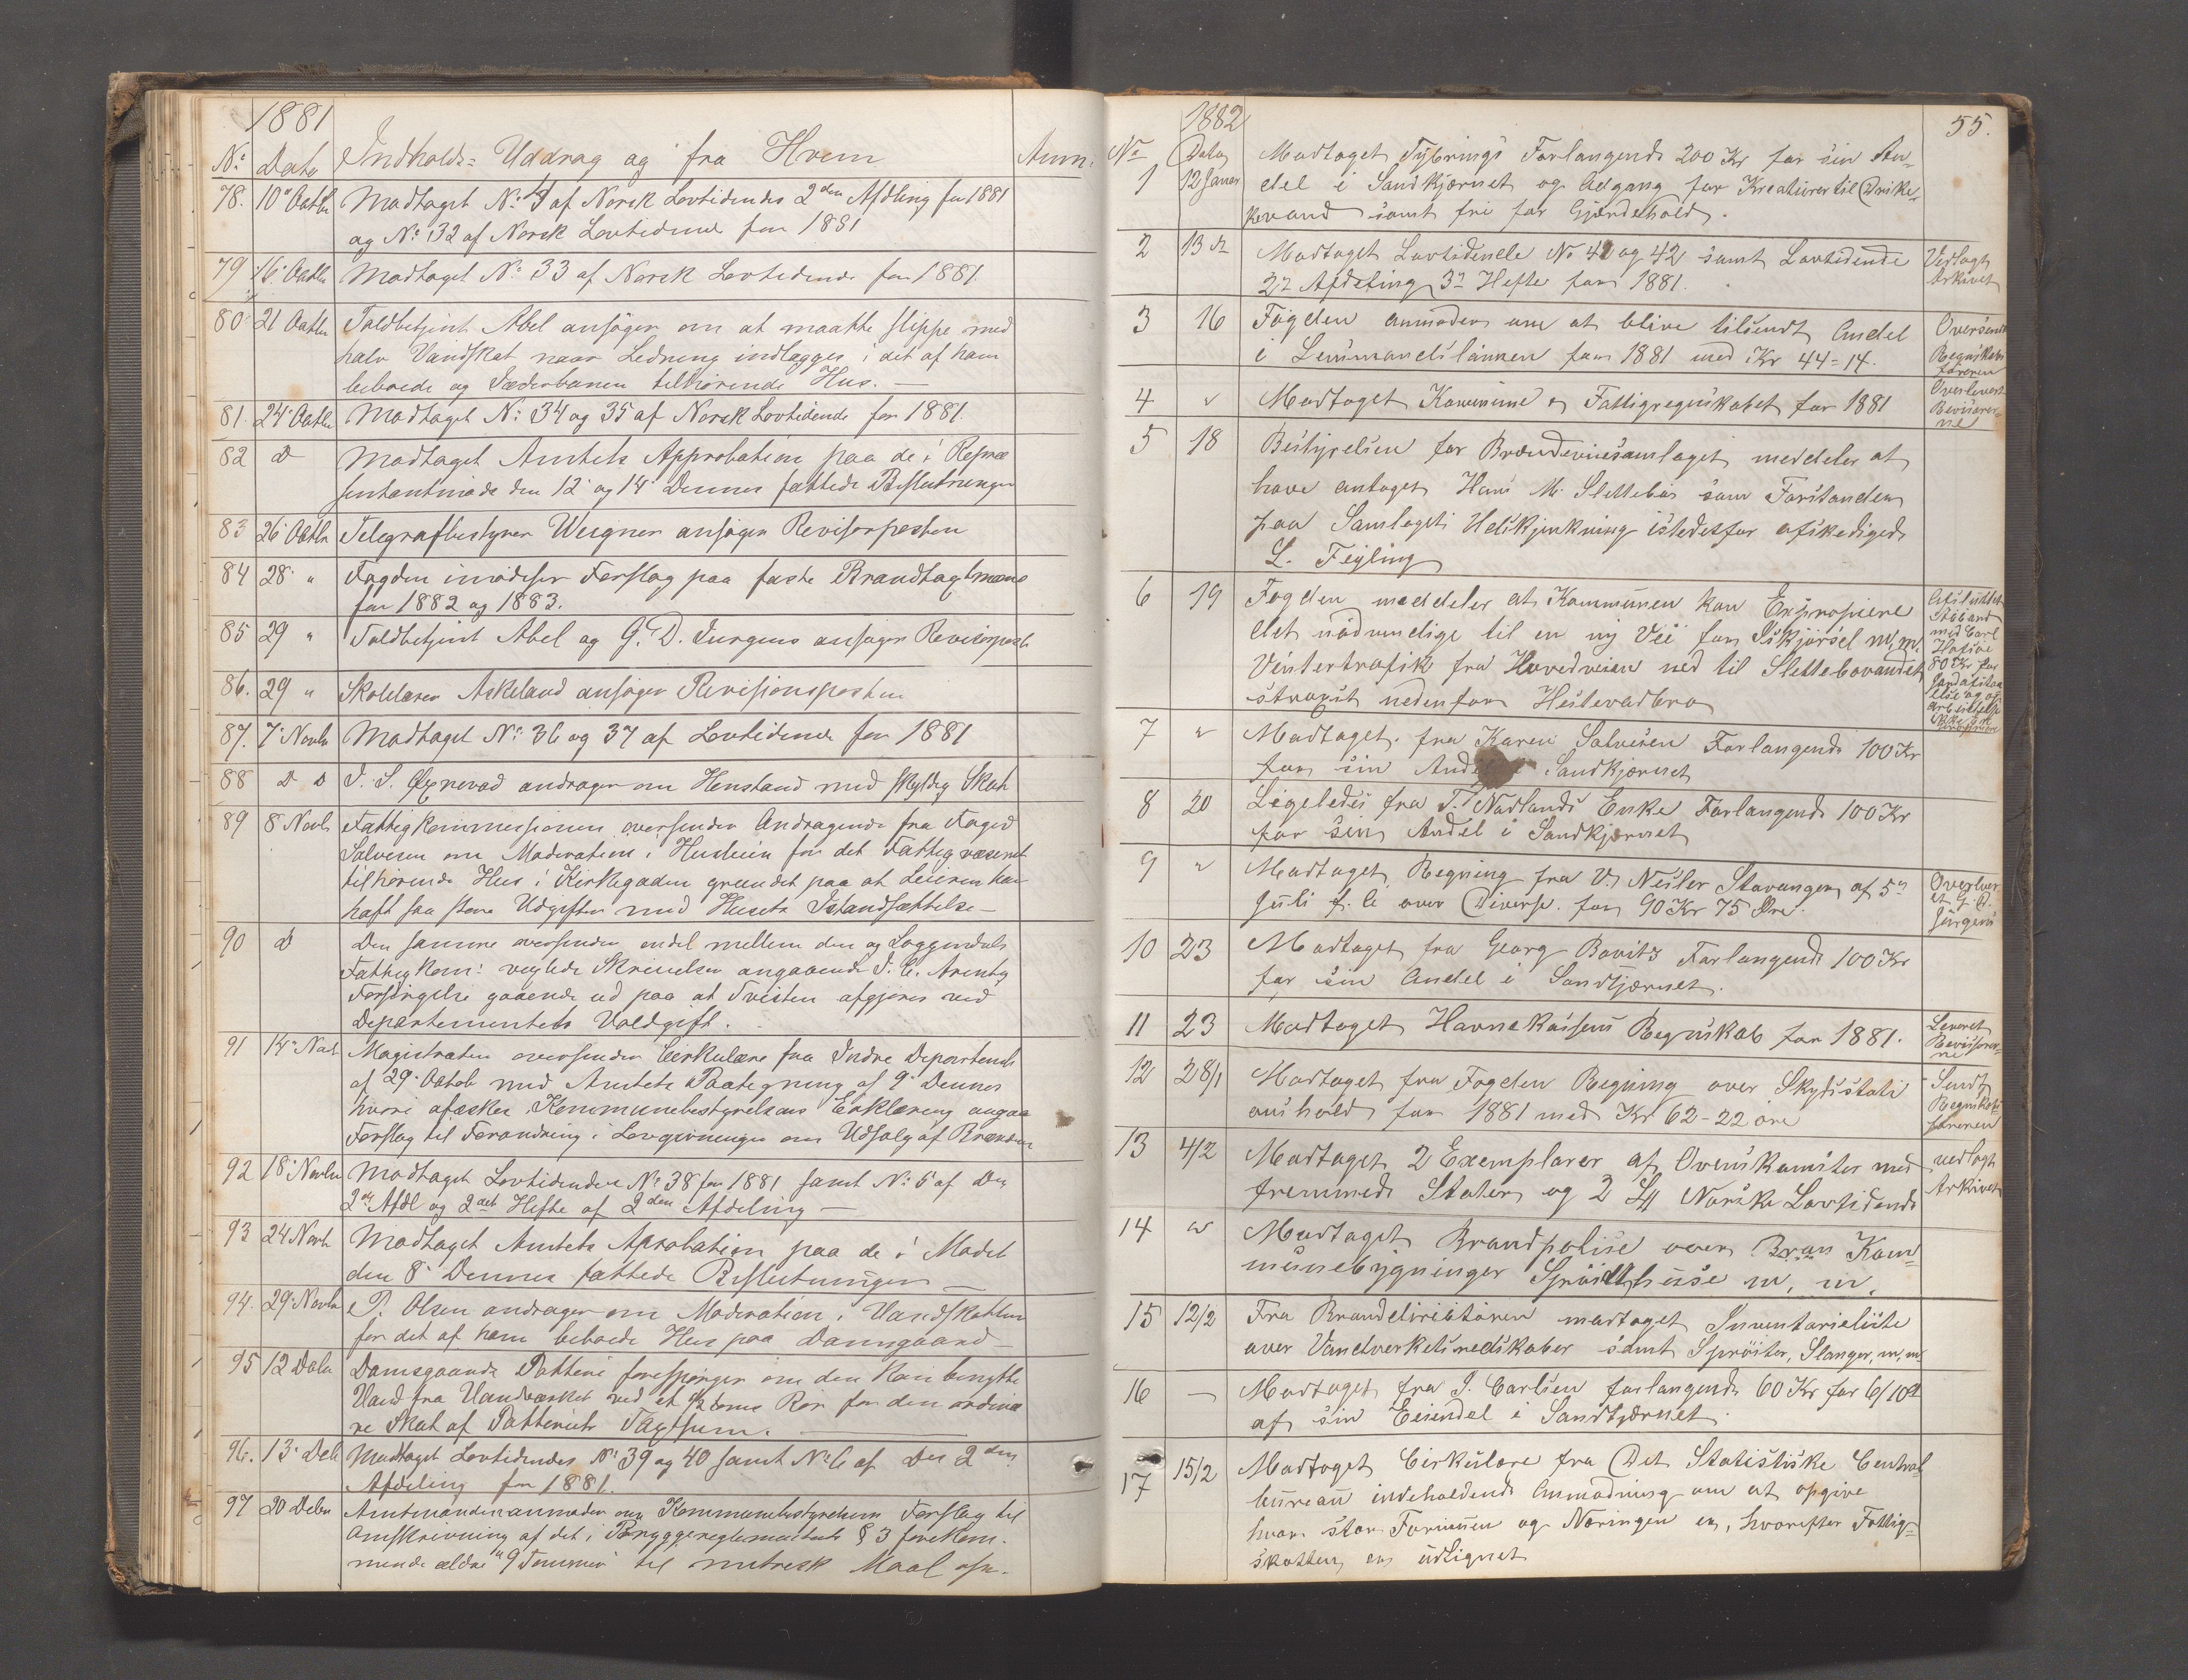 1881
No Dato Indholds= Uddrag og fra Hvem Anm:
78. 10' Octbr Modtaget No: 4 af Norsk Lovtidendes 2den Afdling for 1881
og No: 32 af Norsk Lovtidende for 1881
79 16' Octbr Modtaget No: 33 af Norsk Lovtidende for 1881
80 21 Octbr Toldbetjent Abel ansøger om at maatte slippe med
halv Vandskat naar Ledning indlægges i det af ham
beboede og Jæderbanen tilhørende Hus. —
81. 24' Octbr Modtaget No: 34 og 35 af Norsk Lovtidende for 1881.
82 D Modtaget Amtets Approbation paa de i Repræ
sentantmøde den 12' og 14' Dennes fattede Beslutninger
83 26' Octbr Telegrafbestyrer Weigner ansøger Revisorposten
84 28' " Fogden imødeser Forslag paa faste Brandtagtmænd
for 1882 og 1883.
85 29 " Toldbetjent Abel og G. D. Jurgens ansøger Revisorpost
86. 29 " Skolelærer Askeland ansøger Revisjonsposten
87. 7' Novbr Modtaget No: 36 og 37 af Lovtidende for 1881
88 D D J. S. Øxnevad andrager om Henstand med skyldig Skat
89 8 Novb Fattigkommissionen oversender Andragende fra Foged
Salvesen om Moderation i Husleien for det Fattigvæsenet
tilhørende Hus i Kirkegaden grundet paa at Leieren har
haft saa store Udgifter med Husets Istandsættelse —
90 D Den samme oversender endel mellem den og Soggendals
Fattigkom: vexlede Skrivelser angaaende J. C. Arentz
Forsørgelse gaaende ud paa at Tvisten afgjøres ved
Departementets Voldgift.
91 14' Nov Magistraten oversender Cirkulære fra Indre Departement
af 29' Octob med Amtets Paategning af 9' Dennes
hvori afæskes Kommunebestyrelsens Erklæring angaa
Forslag til Forandring i Lovgivningen om Udsalg af Brændev
92 18' Novbr Modtaget Lovtidenden No: 38 for 1881 samt No: 5 af Den
2en Afdl og 2det Hefte af 2den Afdeling —
93 24 Novb Modtaget Amtets Aprobation paa de i Mødet
den 8' Dennes fattede Beslutninger —
94. 29' Novbr P. Olsen andrager om Moderation i Vandskatten
for det af ham beboede Hus paa Damsgaard —
95 12 Debr Damsgaards Potteri forespørger om den kan benytte
Vand fra Vandværket ved et ½ toms Rør for den ordinæ
re Skat af Potteriets Taxtsum.
96. 13' Deb Modtaget Lovtidendes No: 39 og 40 samt No: 6 af Den 2den
Afdeling for 1881.
97 20 Debr Amtmanden anmoder om Kommunebestyrelsens Forslag til
Omskrivning af det i Bryggereglementets § 3 forekom-
mende ældre "9 Tommer" til metrisk Maal
1882 55.
No Dato Modtaget Tybrings Forlangende 200 Kr for sin An-
1 12 Januar del i Sandkjærnet og Adgang for Kreaturer til Drike-
kevand samt fri for Gjærdehold.
2 13 Modtaget Lovtidende No 41 og 42 samt Lovtidende Vedlagt
2n Afdeling 3n Hefte for 1881. Arkivet
3 16 Fogden anmoder om at blive tilsendt Andel Oversendt
i Lensmandslønnen for 1881 med Kr 44=14. Regnskabs
føreren
4 " Modtaget Kommune & Fattigregnskabet for 1881 Overleveret
Revisorer=
ne
5 18 Bestyrelsen for Brændevinssamlaget meddeler at
have antaget Hans M. Slettebøs som Forstander
paa Samlagets Udskjenkning istedetfor afskediget
L. Feyling
6 19 Fogden meddeler at Kommunen kan Expropriere
det nødvendige til en ny Vei for Iskjørsel m. m.
Vintertrafik fra Hovedveien ned til Slettebovandet
strengst nedenfor Hestevadbro
7 " Modtaget fra Karen Salvesen Forlangende 100 Kr
for sin Andel i Sandkjærnet
8 20 Ligeledes fra T. Nødlands Enke Forlangende 100 Kr
for sin Andel i Sandkjærnet
9 " Modtaget Regning fra V. Nesler Stavanger af 5n Overlever
Juli f. A over Diverse for 90 Kr 75 Øre. et G. D.
Jürgens
10 23 Modtaget fra Georg Bovitz Forlangende 100 Kr
for sin Andel i Sandtjærnet.
11 23 Modtaget Havnekassens Regnskab for 1881. Leveret
Revisorer=
ne
12 28/1 Modtaget fra Fogden Regning over Skydsstati Sendt
onshold for 1881 med Kr 62-22 øre Regnskabs
føreren
13 4/2 Modtaget 2 Exemplarer af Overenskomster med vedlagt
fremmede Stater og 2 Norske Lovtidende Arkivet
14 " Modtaget Brandpolise over Kom=
munebygninger Sprøitehuse m. m.
15 12/2 Fra Branddirektøren modtaget Inventarieliste
over Vandverkets redskaber samt Sprøiter, Slanger, m, m
16 — Modtaget fra J. Carlsen forlangende 60 Kr for 6/10dl
af sin Eiendel i Sandtjærnet.
17 15/2 Modtaget Cirkulære fra Det Statistiske Central
bureau indeholdende Anmodning om at opgive
hvor stor Formuen og Næringen er, hvorefter Fattig=
skatten er udlignet